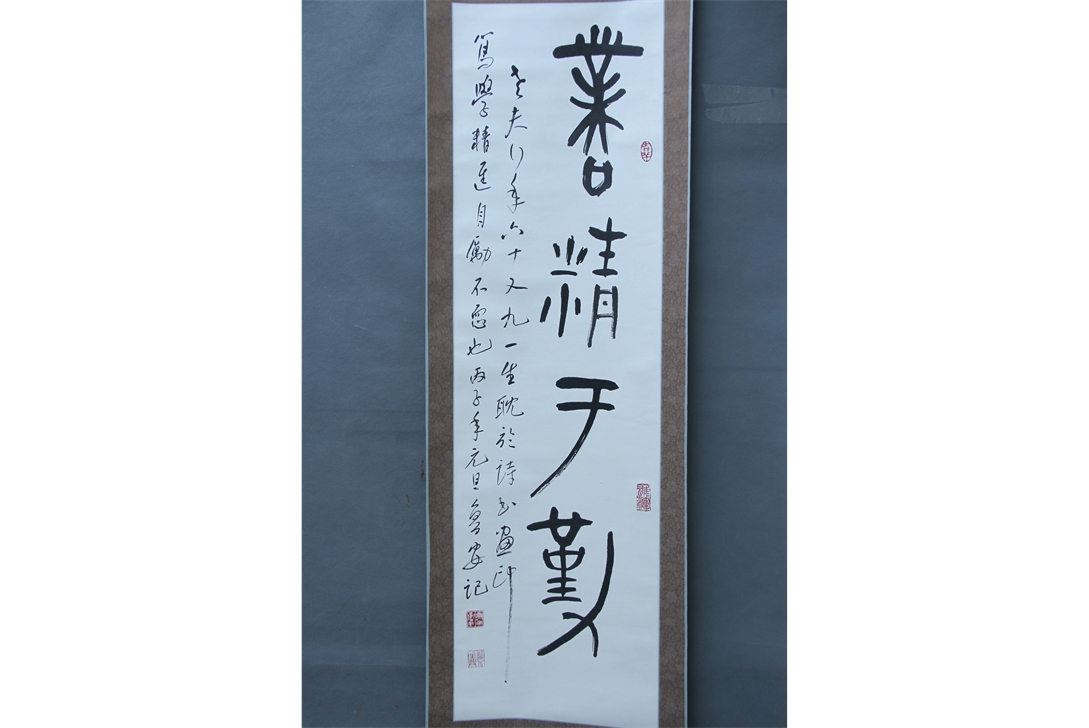 業精于勤
老夫行年六十又九一生耽於詩書畫印
篤學精進自勵不怠也丙子年元旦魯安記